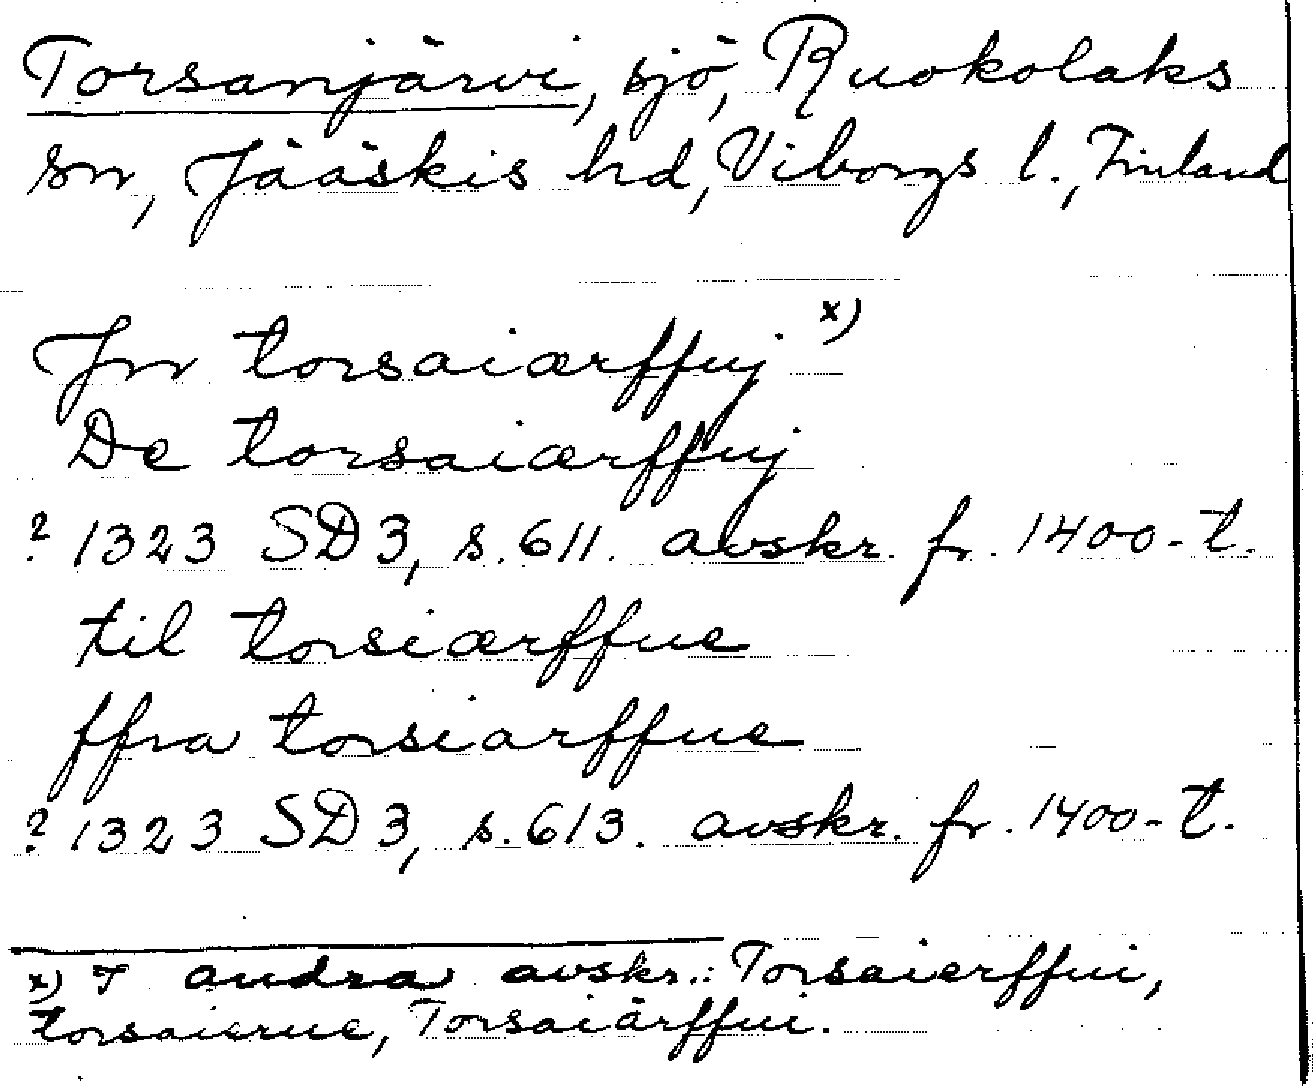 Torsanjärvi, sjö, Ruokolaks
sn, Jääskis hd, Viborgs l., Finland
Jn torsaiærffuj x)
De torsaiærffuj
? 1323 SD 3, s. 611. avskr. fr. 1400-t.
til torsiærffue
ffra torsiarffue
? 1323 SD 3, s. 613. avskr. fr. 1400-t.
x) I andra avskr.: Torsaierffui,
torsaierue, Torsaiärffui.